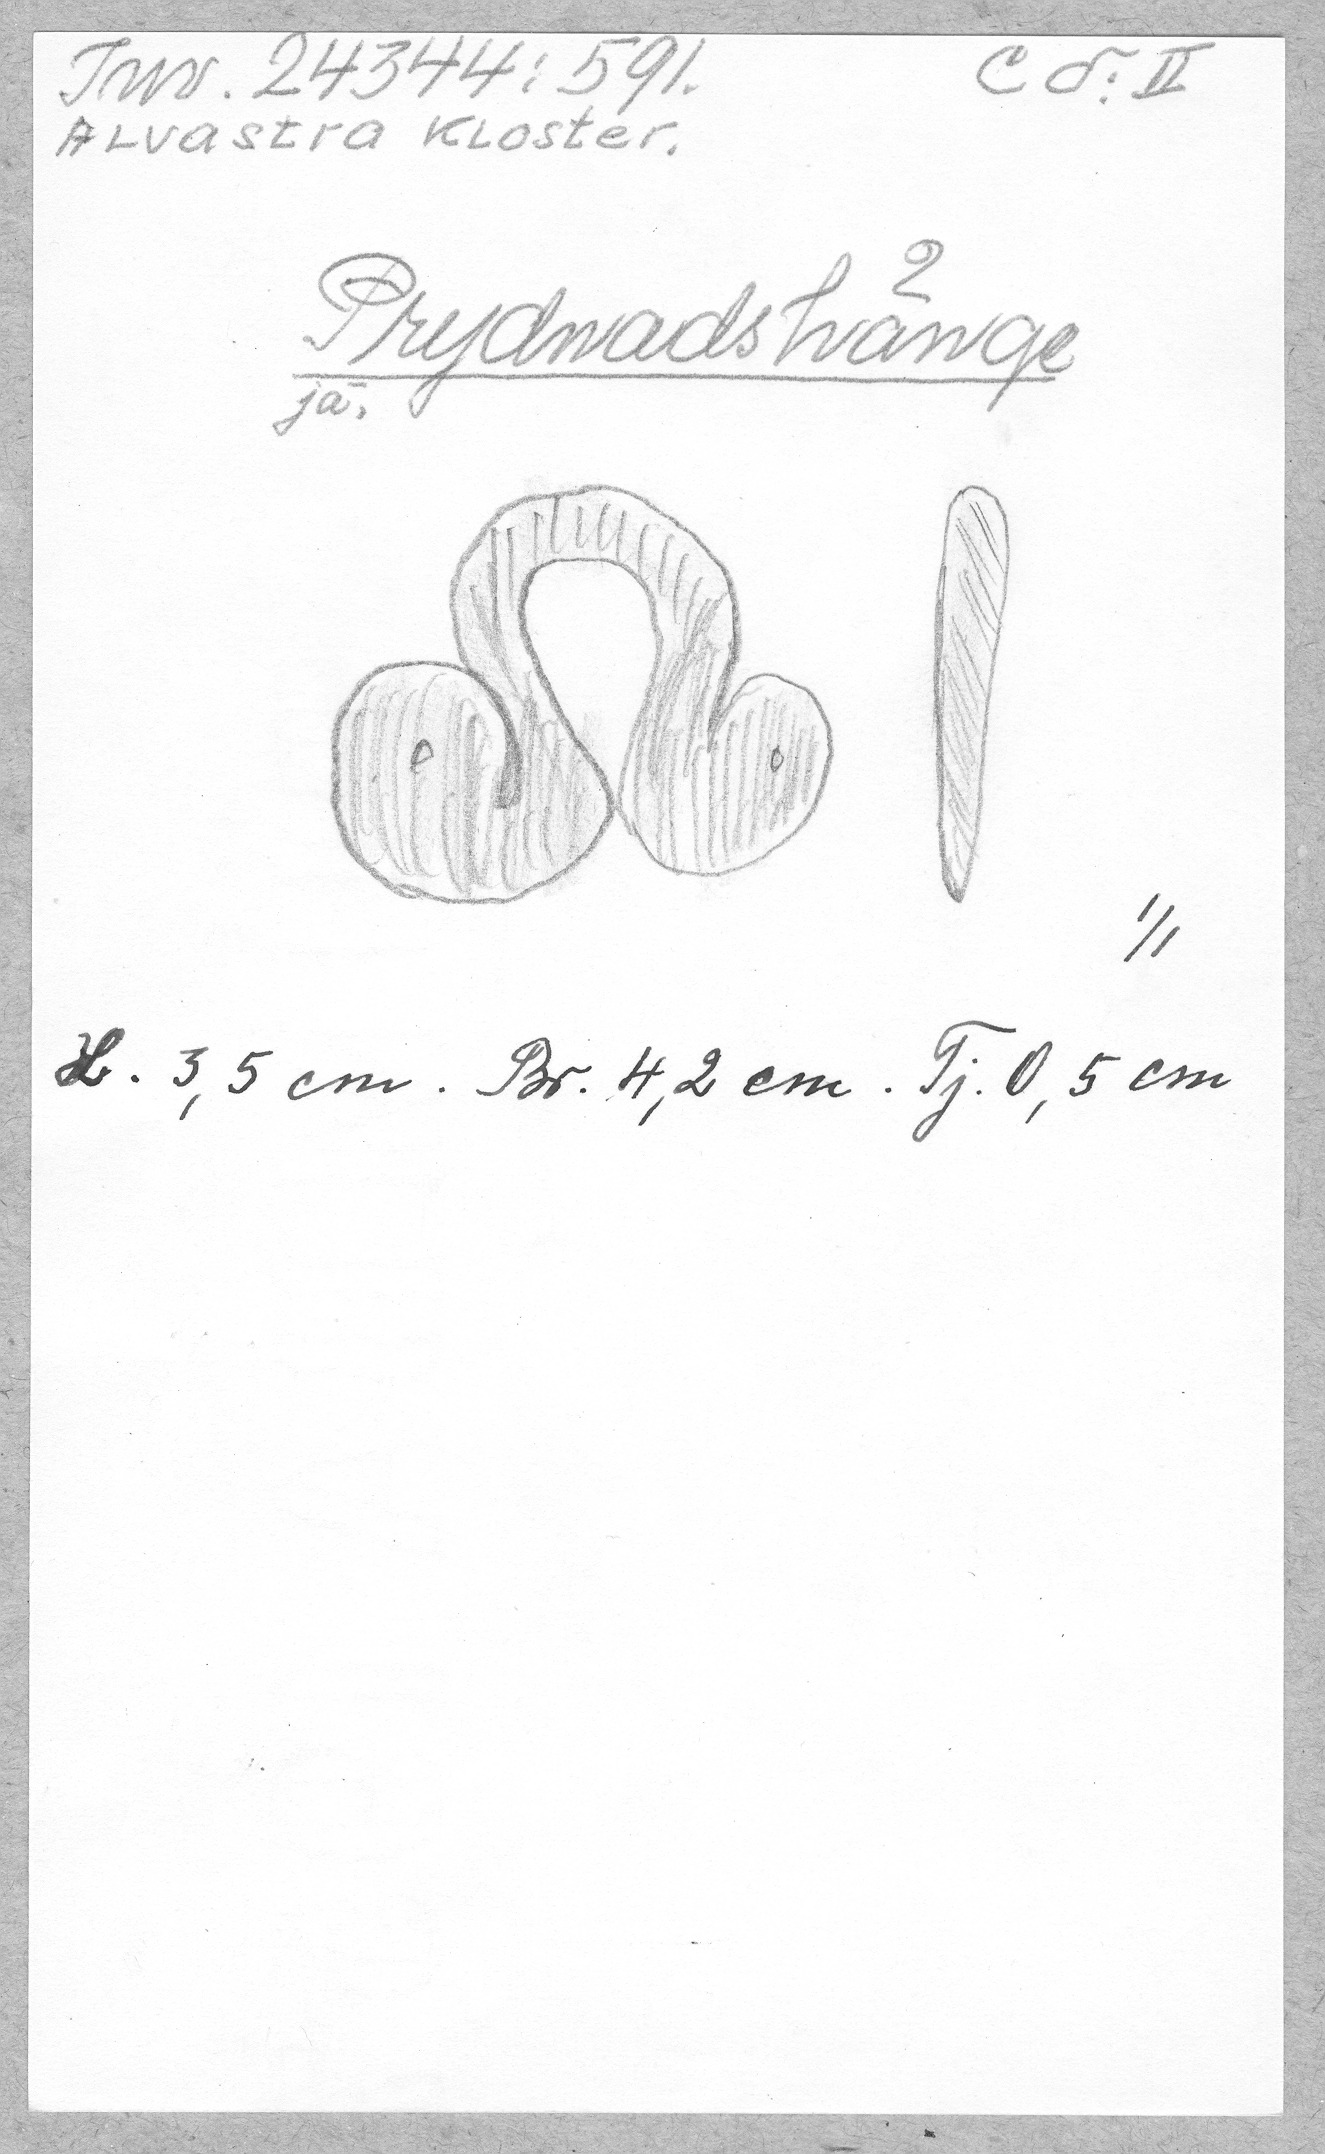 Inv. 24344:591. C σ: II
Alvastra Kloster.
2
Prydnadshänge
jä.
1/1
H. 3,5 cm. Br. 4,2 cm. Tj. 0,5 cm